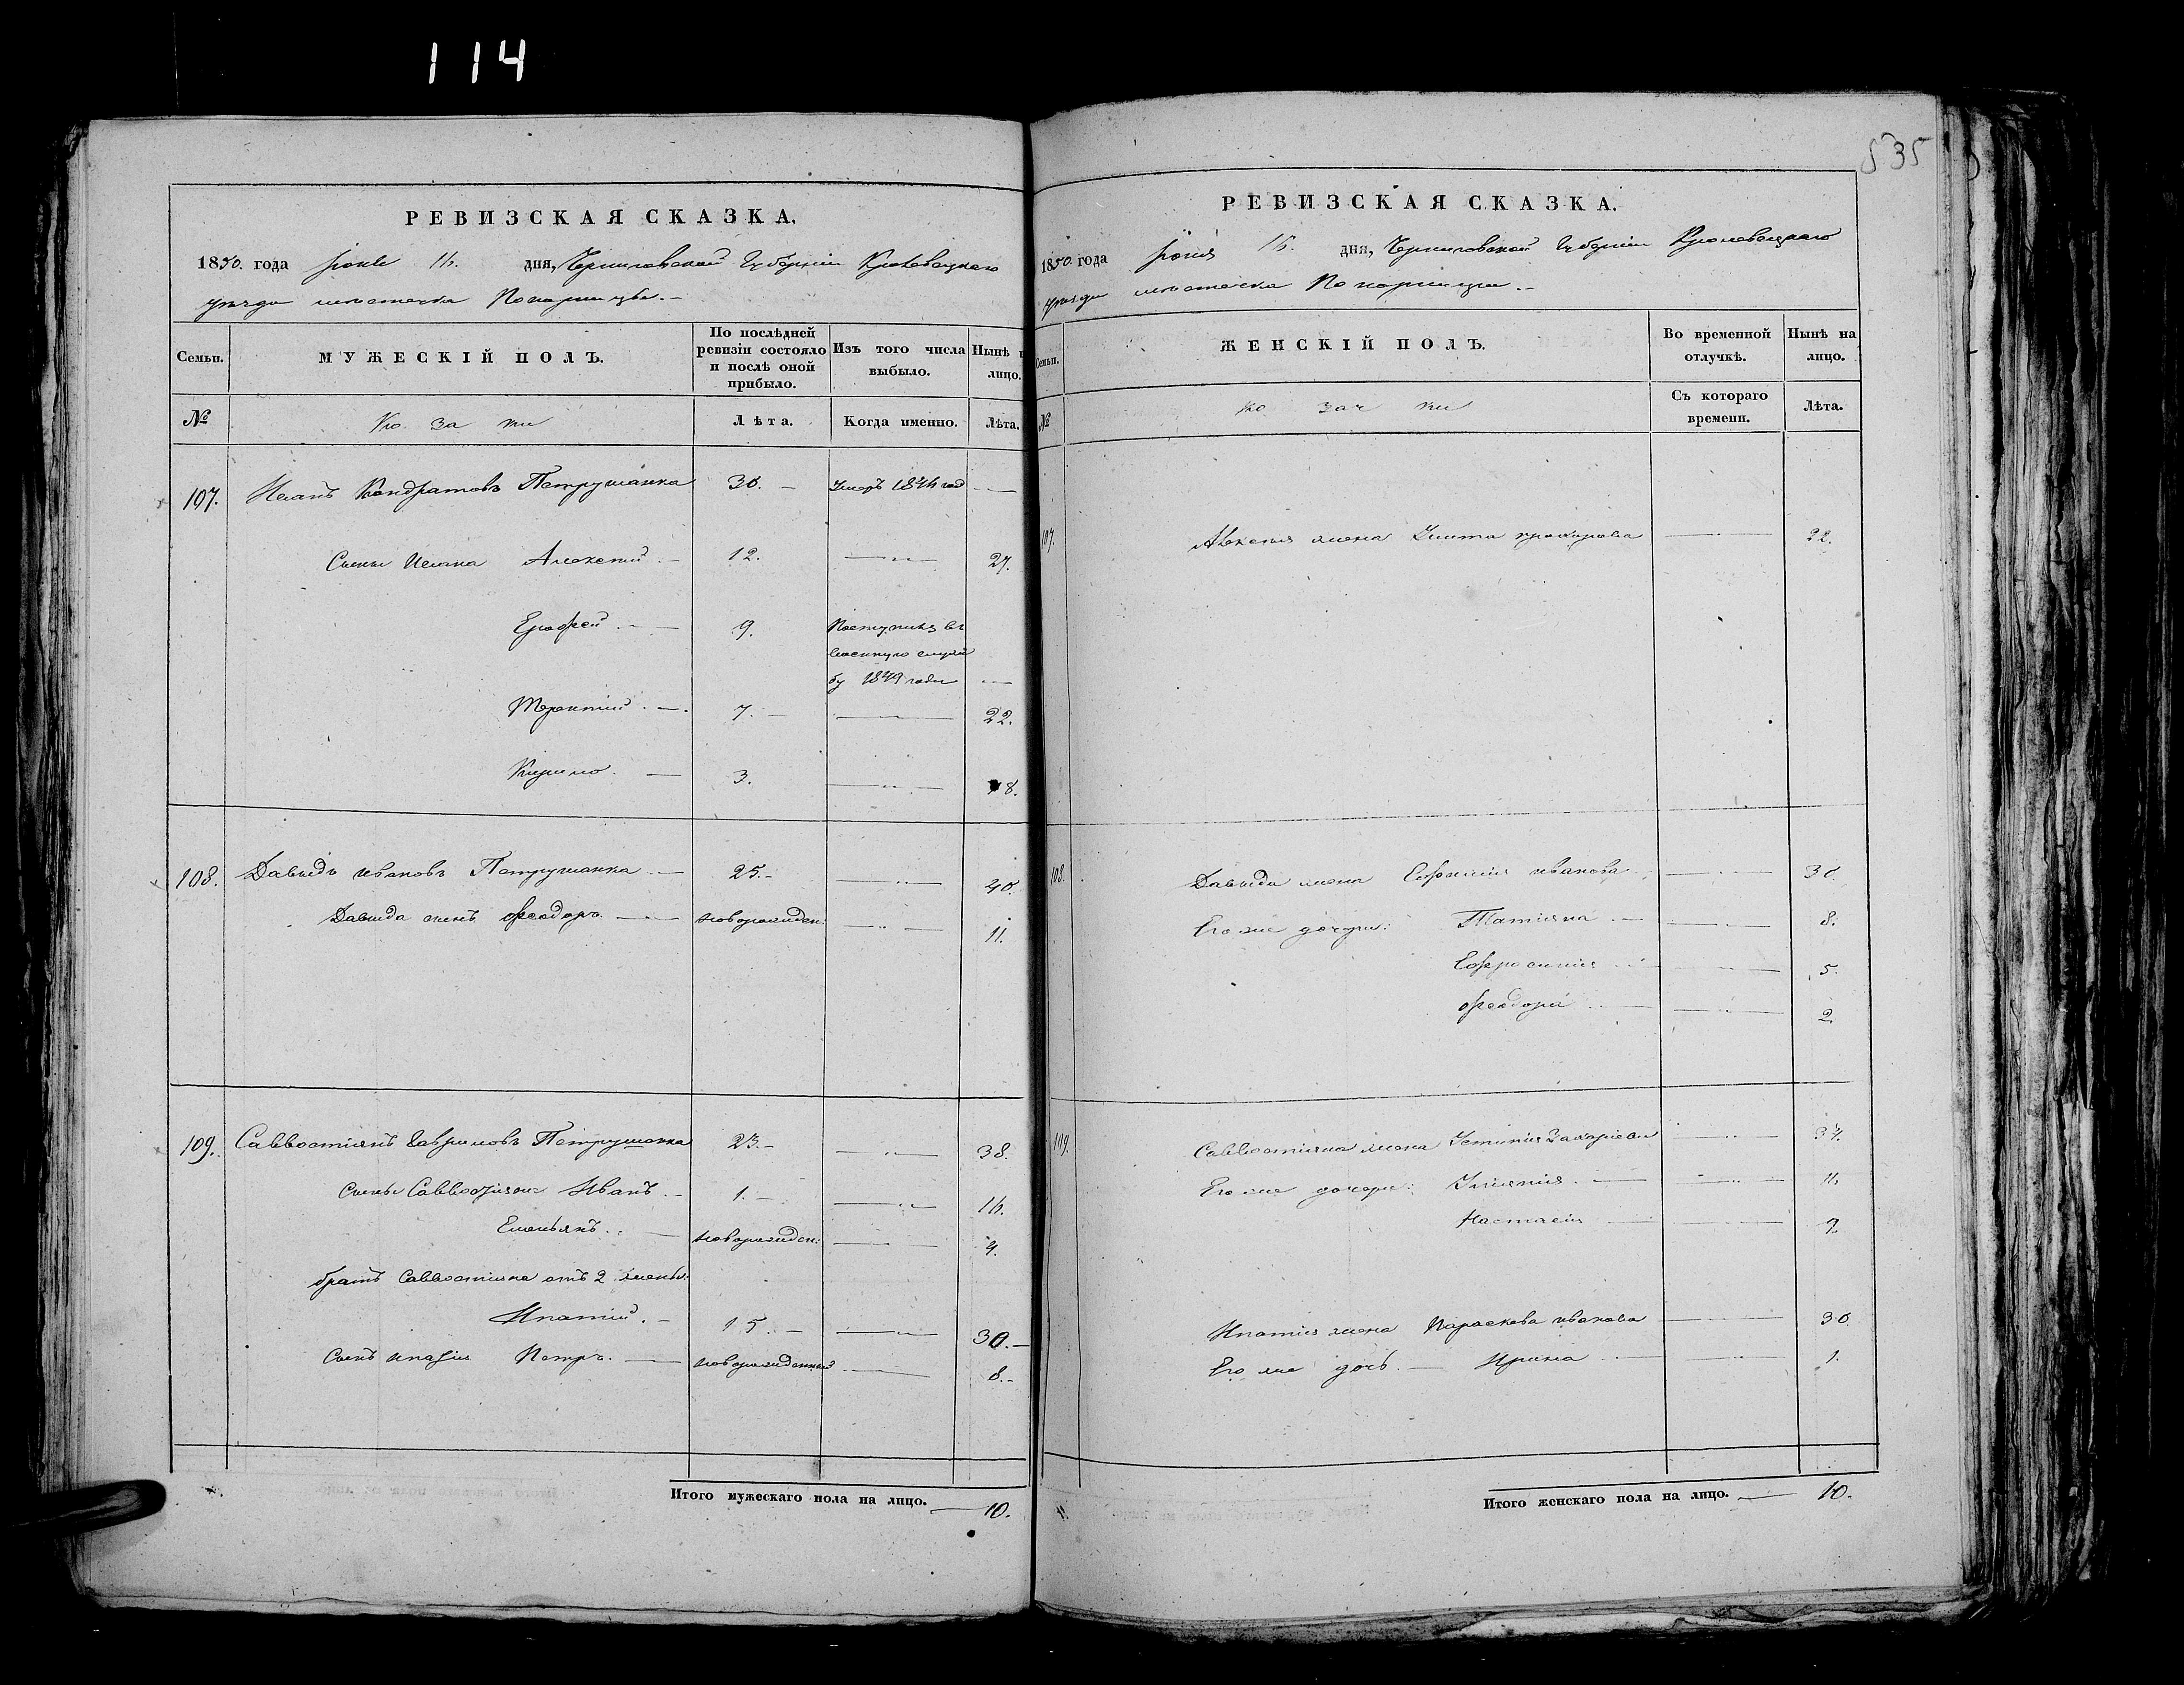 114
535
РЕВИЗСКАЯ СКАЗКА.
1850. года Іюня 16. дня, Черниговской Губерніи Кролевецкаго
уѣзда мѣстечка Понорницы.–
Семьи.
МУЖЕСКІЙ ПОЛЪ.
По послѣдней ревизіи состояло и послѣ оной прибыло.
Изъ того числа выбыло.
Нынѣ н лицо.
№
Ко за ки
Лѣта.
Когда именно.
Лѣта.
107. Кондратовъ Петрушанка 30. – Умеръ 184 год —
Сыны Алексѣй. – 12. —„— 27.
Ерофей. – — 9. Поступилъ въ
военную служ
бу 1849 года —
Терентій. —. 7. – —„— 22.
Кирило. — 3. —„— 18.
108. Давыдъ ивановъ Петрушанка. — 25.– —„— 40.
Давыда сынъ Феодоръ. — новорожден: —„— 11.
109. Савостіянъ Гавриловъ Петрушанка 23.– —„— 38.
Сыны Иванъ. – 1. – —„— 16.
Емельянъ. . — новорожден: —„— 4.
братъ Савостіяна отъ 2 жены.
Ипатій. – 15. – —„— 30.–
Сынъ ипатія Петръ. — новорожденный —„— 8.–
Итого мужескаго пола на лицо. — 10.
РЕВИЗСКАЯ СКАЗКА.
1850. года Іюня 16. дня, Черниговской Губерніи Кролевецкаго
уѣзда мѣстечка Понорницы.–
Семьи.
ЖЕНСКІЙ ПОЛЪ.
Во временной отлучкѣ.
Нынѣ на лицо.
№
ко зач ки
Съ котораго времени.
Лѣта.
107. Алексѣя жена Улита прохорова —„— 22.
108. Давыда жена Евфимія иванова. —„— 30.
Его же дочери: Татіяна. — —„— 8.
Ефросинія —„— 5.
Феодора —„— 2.
109. Савостіяна жена Устинія Захаріева —„— 37.
Его же дочери: Уліянія. — —„— 11.
Настасія — —„— 9.
Ипатія жена Параскева иванова —„— 30
Его же дочь. – Ирина — —„— 1.
Итого женскаго пола на лицо. — 10.